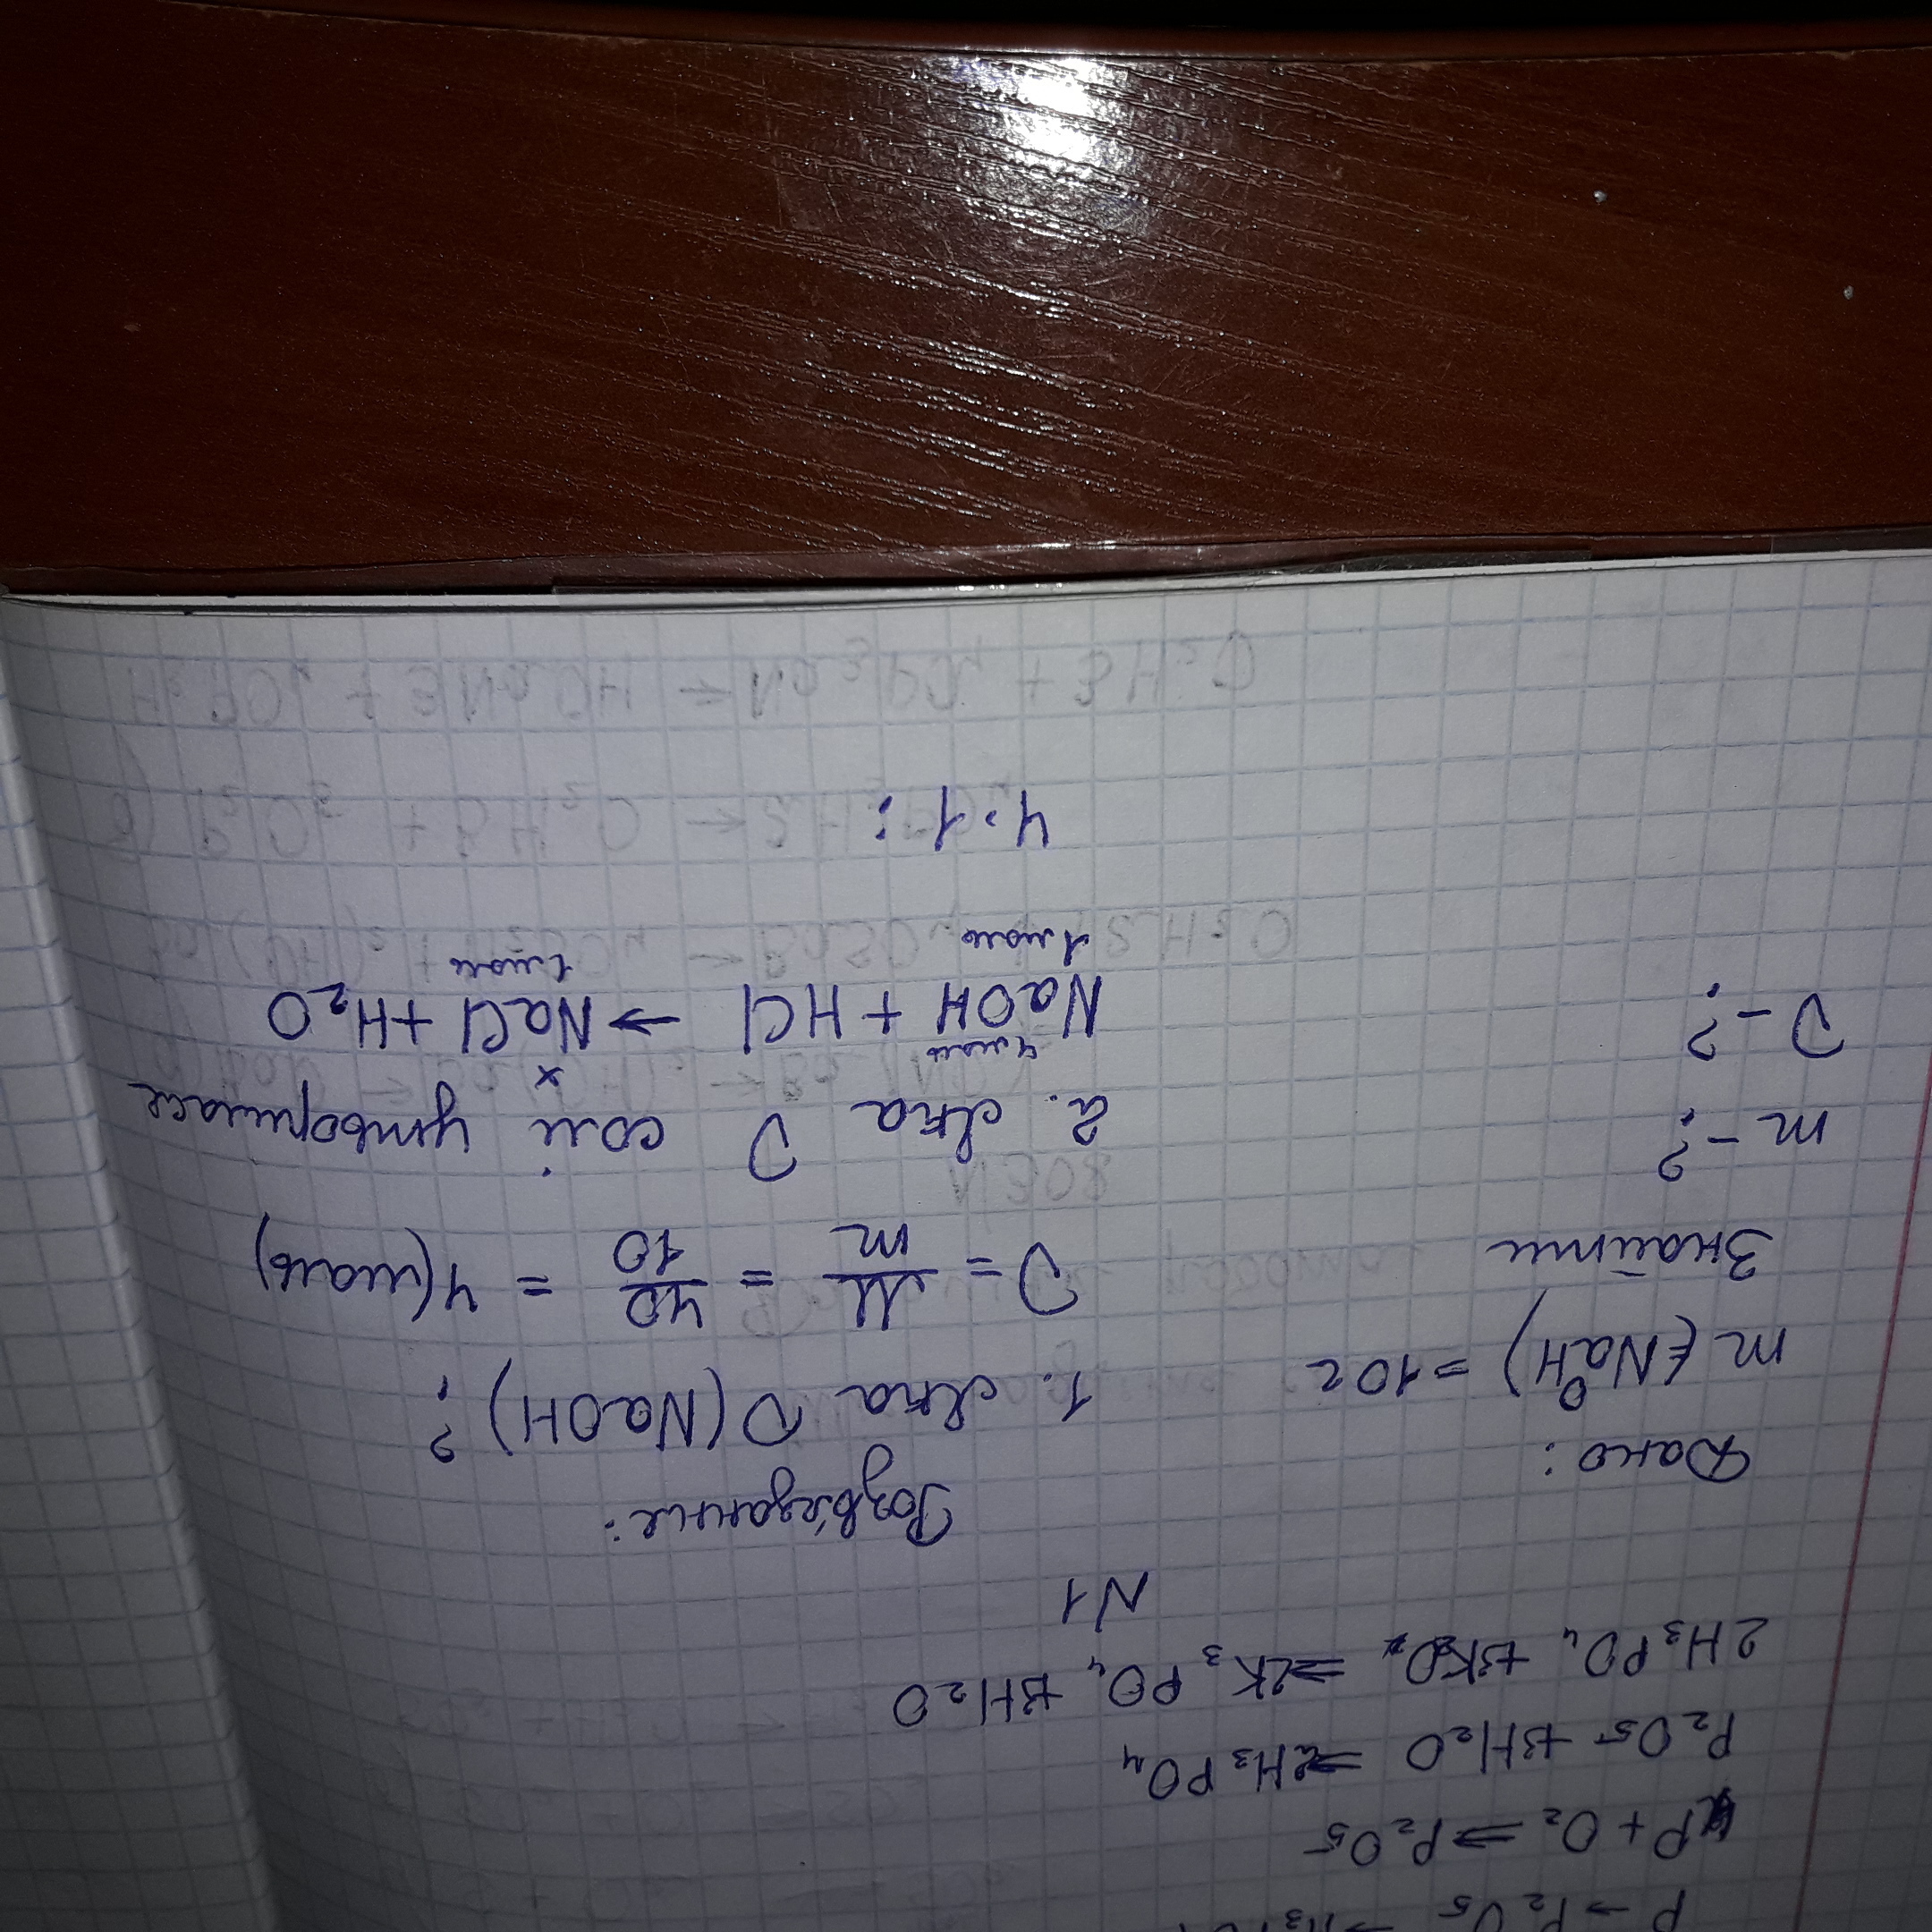 P → P₂O₅
P + O₂ → P₂O₅
P₂O₅ + 3H₂O → 2H₃PO₄
2H₃PO₄ + 3K₂O → 2K₃PO₄ + 3H₂O
N1
Дано:
m (NaOH) = 10г
Знайти
m - ?
ν - ?
Розв'язання:
1. Яка ν (NaOH)?
ν = M/m = 40/10 = 4 (моль)
2. Яка ν солі утворилась
4моль x
NaOH + HCl → NaCl + H₂O
1моль 1моль
4:1: